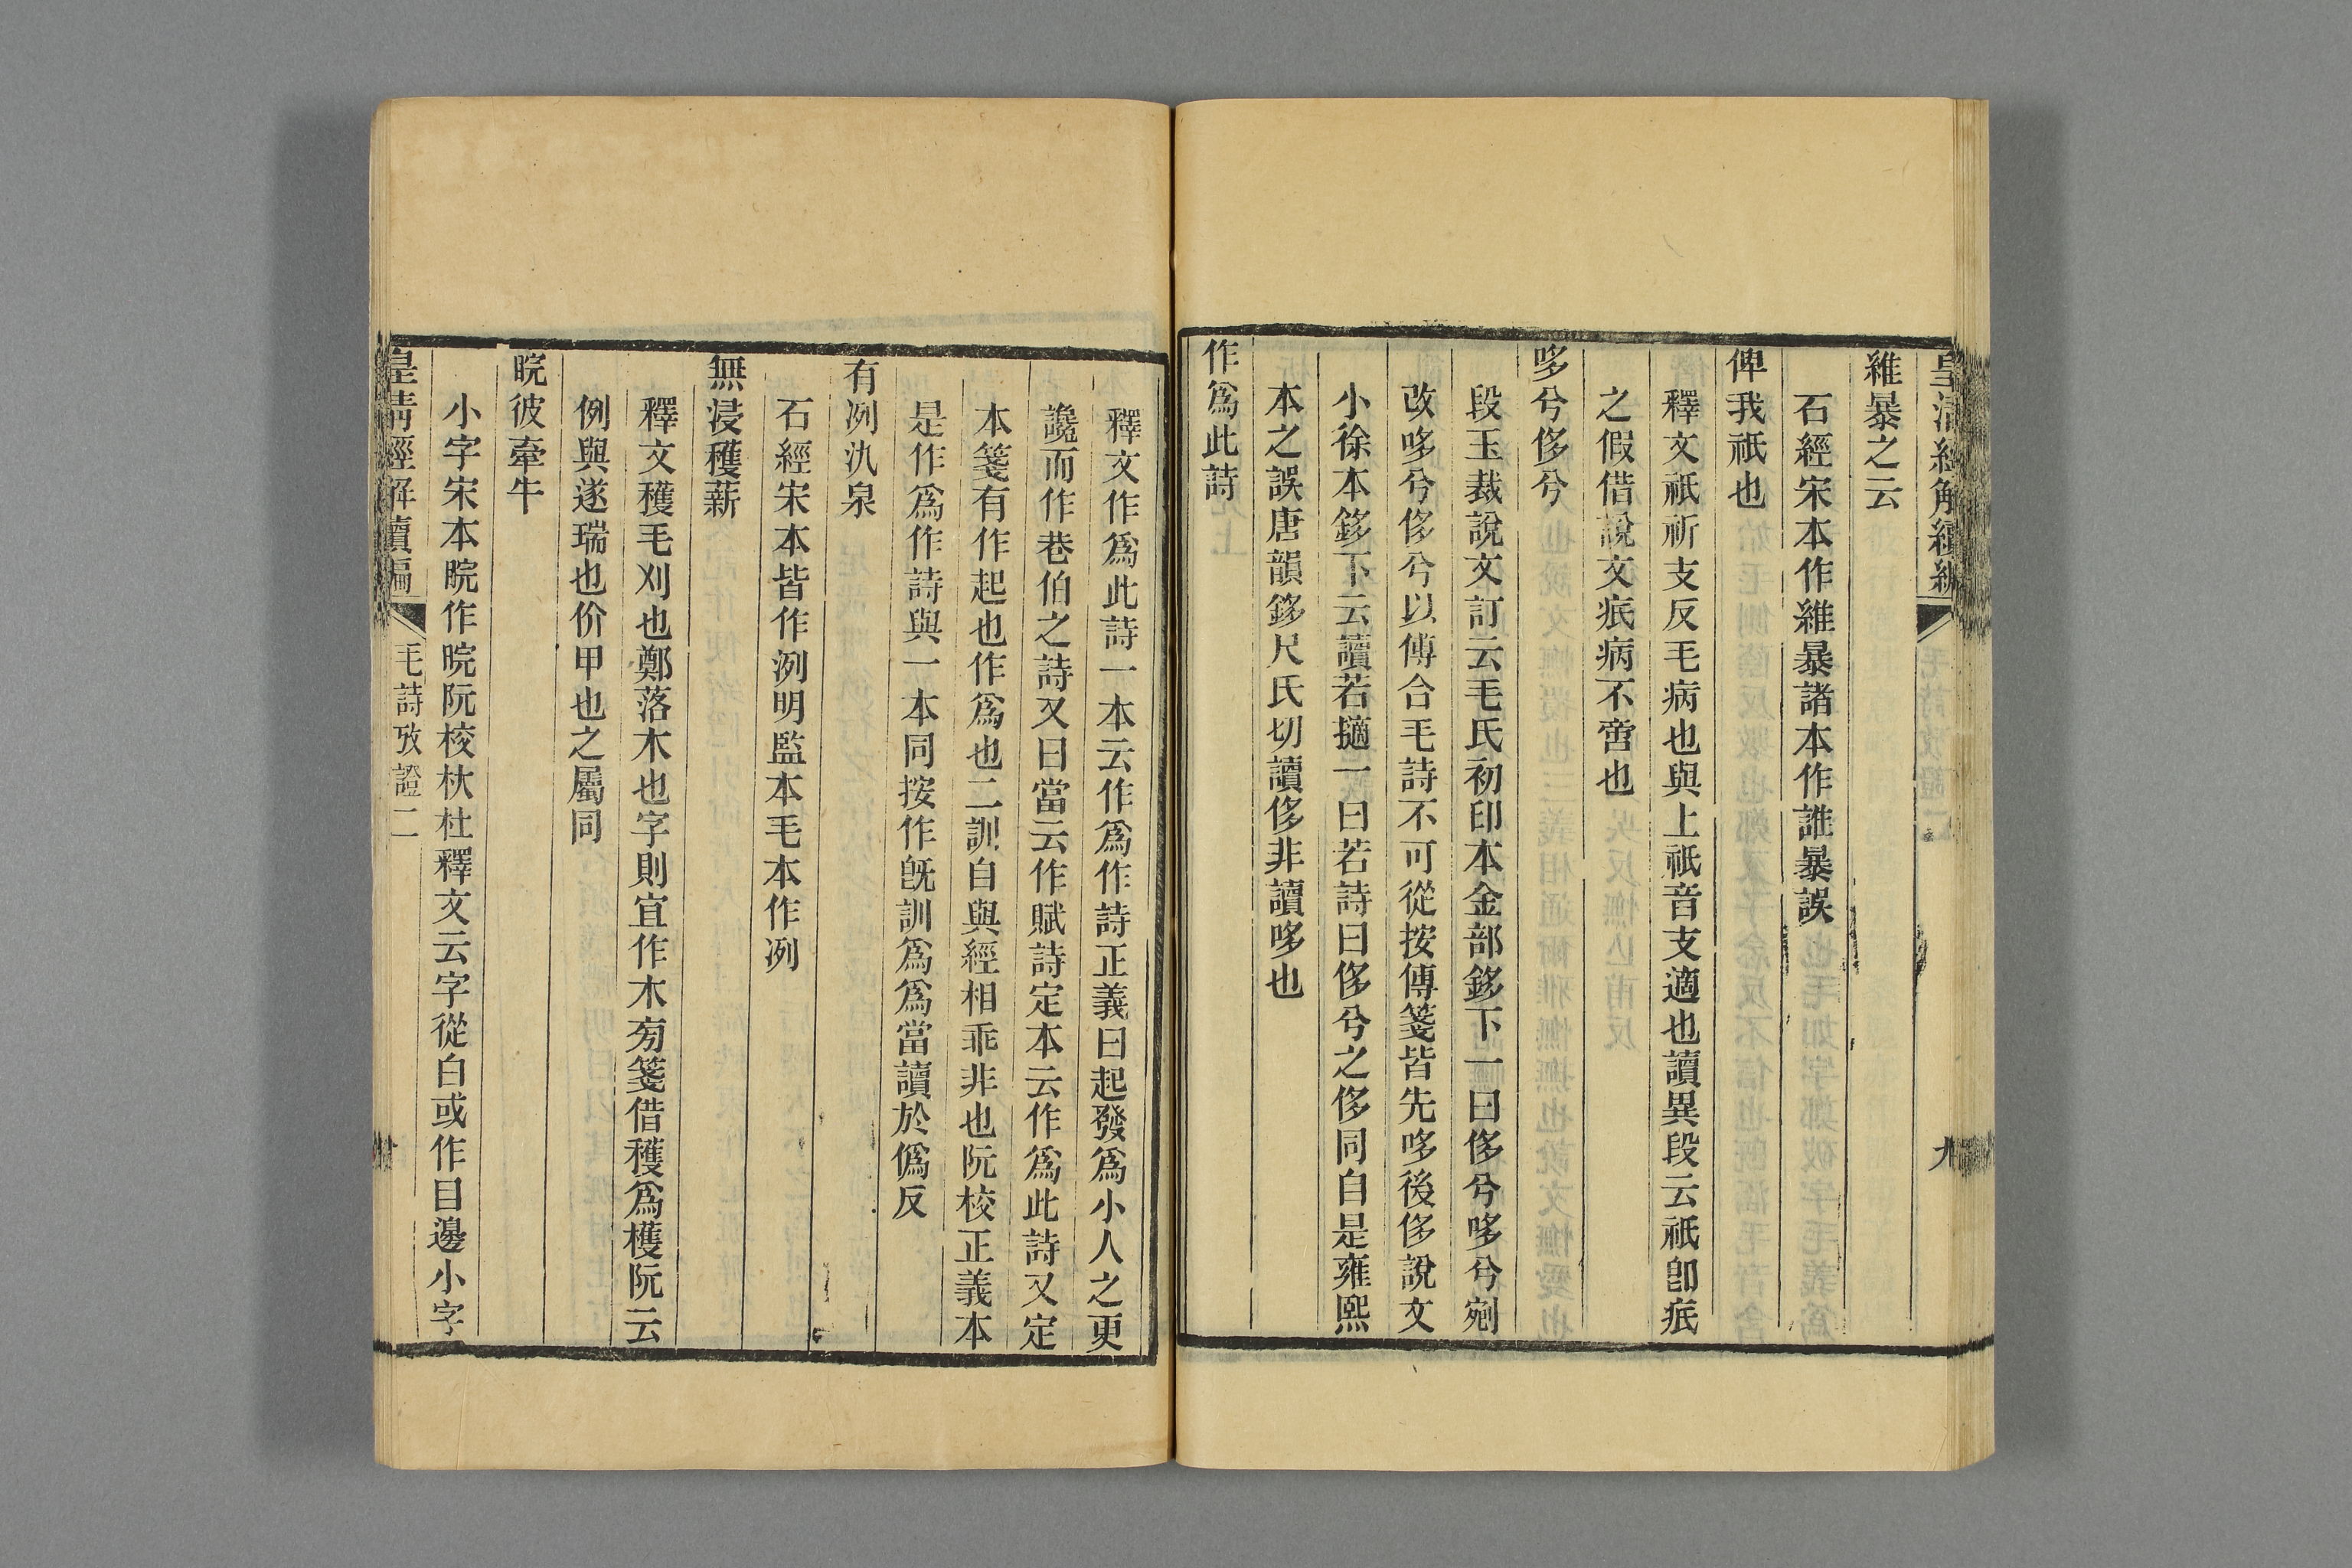 皇清經解續編 毛詩攷證二 九
維暴之云
石經宋本作維暴諸本作誰暴誤
俾我祇也
釋文祇祈支反毛病也與上祇音支適也讀異段云祇卽疧
之假借說文疧病不啻也
哆兮侈兮
段玉裁說文訂云毛氏初印本金部鉹下一曰侈兮哆兮剜
改哆兮侈兮以傅合毛詩不可從按傅箋皆先哆後侈說文
小徐本鉹下云讀若擿一曰若詩曰侈兮之侈同自是雍熙
本之誤唐韻鉹尺氏切讀侈非讀哆也
作爲此詩
釋文作爲此詩一本云作爲作詩正義曰起發爲小人之更
讒而作巷伯之詩又曰當云作賦詩定本云作爲此詩又定
本箋有作起也作爲也二訓自與經相乖非也阮校正義本
是作爲作詩與一本同按作旣訓爲爲當讀於僞反
有冽氿泉
石經宋本皆作洌明監本毛本作冽
無浸穫薪
釋文穫毛刈也鄭落木也字則宜作木旁箋借穫爲檴阮云
例與遂瑞也价甲也之屬同
睆彼牽牛
小字宋本睆作晥阮校杕杜釋文云字從白或作目邊小字
皇清經解續編 毛詩攷證二 十